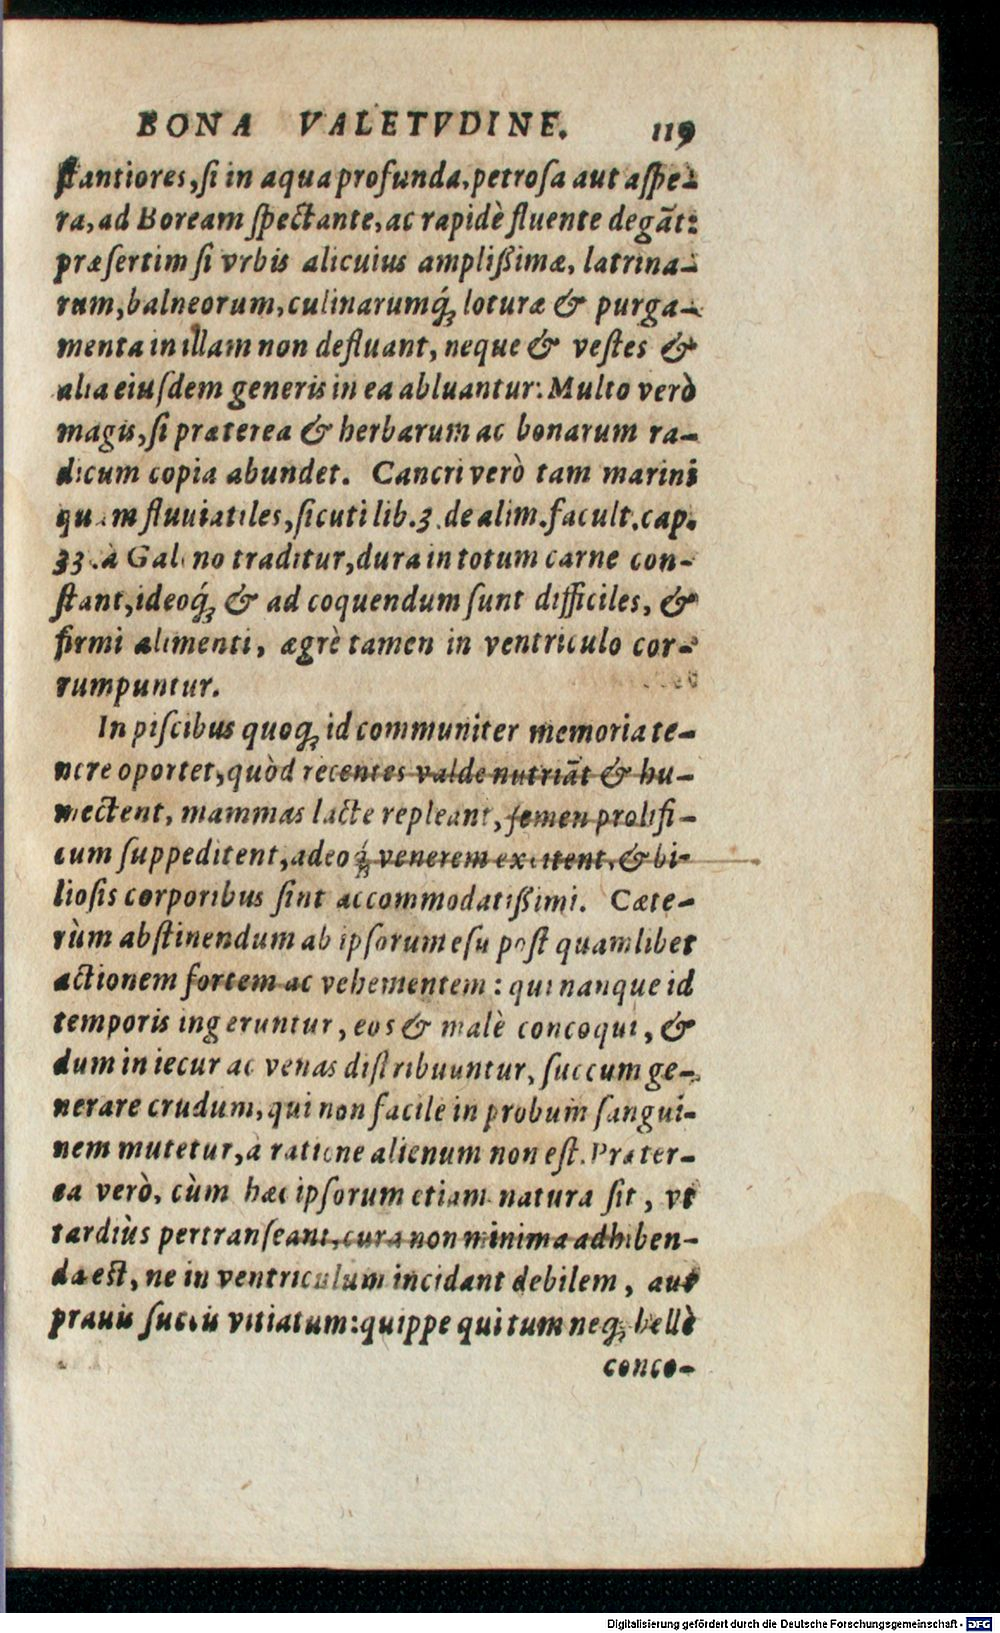 BONA VALETVDINE. 119
ſtantiores, ſi in aqua profunda, petroſa aut aſpe-
ra, ad Boream ſpectante, ac rapidè fluente degāt:
præſertim ſi vrbis alicuius ampliſsimæ, latrina-
rum, balneorum, culinarumq́ꝫ loturæ & purga-
menta in illam non defluant, neque & veſtes &
alia eiuſdem generis in ea abluantur: Multo verò
magis, ſi præterea & herbarum ac bonarum ra-
dicum copia abundet. Cancri verò tam marini
quam fluuiatiles, ſicuti lib. 3. de alim. facult. cap.
33. à Galeno traditur, dura in totum carne con-
ſtant, ideoq́ꝫ & ad coquendum ſunt difficiles, &
firmi alimenti, ægrè tamen in ventriculo cor-
rumpuntur.
In piſcibus quoqꝫ id communiter memoria te-
nere oportet, quòd recentes valde nutriāt & hu-
mectent, mammas lacte repleant, ſemen prolifi-
cum ſuppeditent, adeoq́ꝫ venerem excitent, & bi-
lioſis corporibus ſint accommodatiſsimi. Cæte-
rùm abſtinendum ab ipſorum eſu poſt quamlibet
actionem fortem ac vehementem: qui nanque id
temporis ingeruntur, eos & malè concoqui, &
dum in iecur ac venas diſtribuuntur, ſuccum ge-
nerare crudum, qui non facile in probum ſangui-
nem mutetur, à ratione alienum non eſt. Præter-
ea verò, cùm hæc ipſorum etiam natura ſit, vt
tardiùs pertranſeant, cura non minima adhiben-
da eſt, ne in ventriculum incidant debilem, aut
prauis ſuccis vitiatum: quippe qui tum neqꝫ bellè
conco-
Digitalisierung gefördert durch die Deutsche Forschungsgemeinschaft - DFG